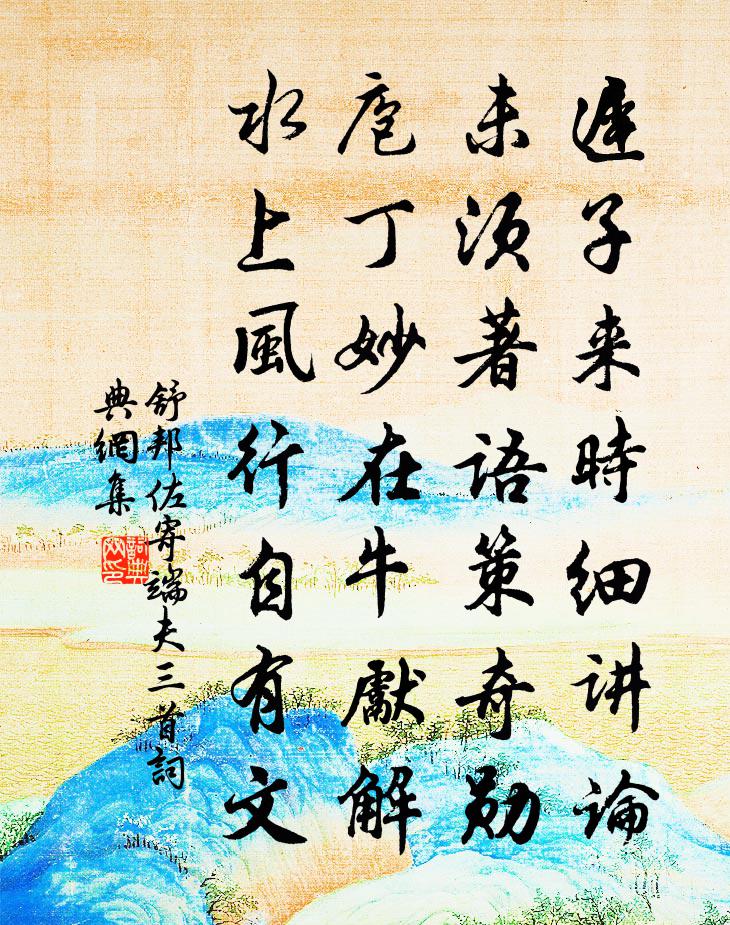 遲子来時細讲論
未須著語策奇勋
庖丁妙在牛獻解
水上風行自有文
舒邦佐寄端夫三首詞
典網集
詞典
网印